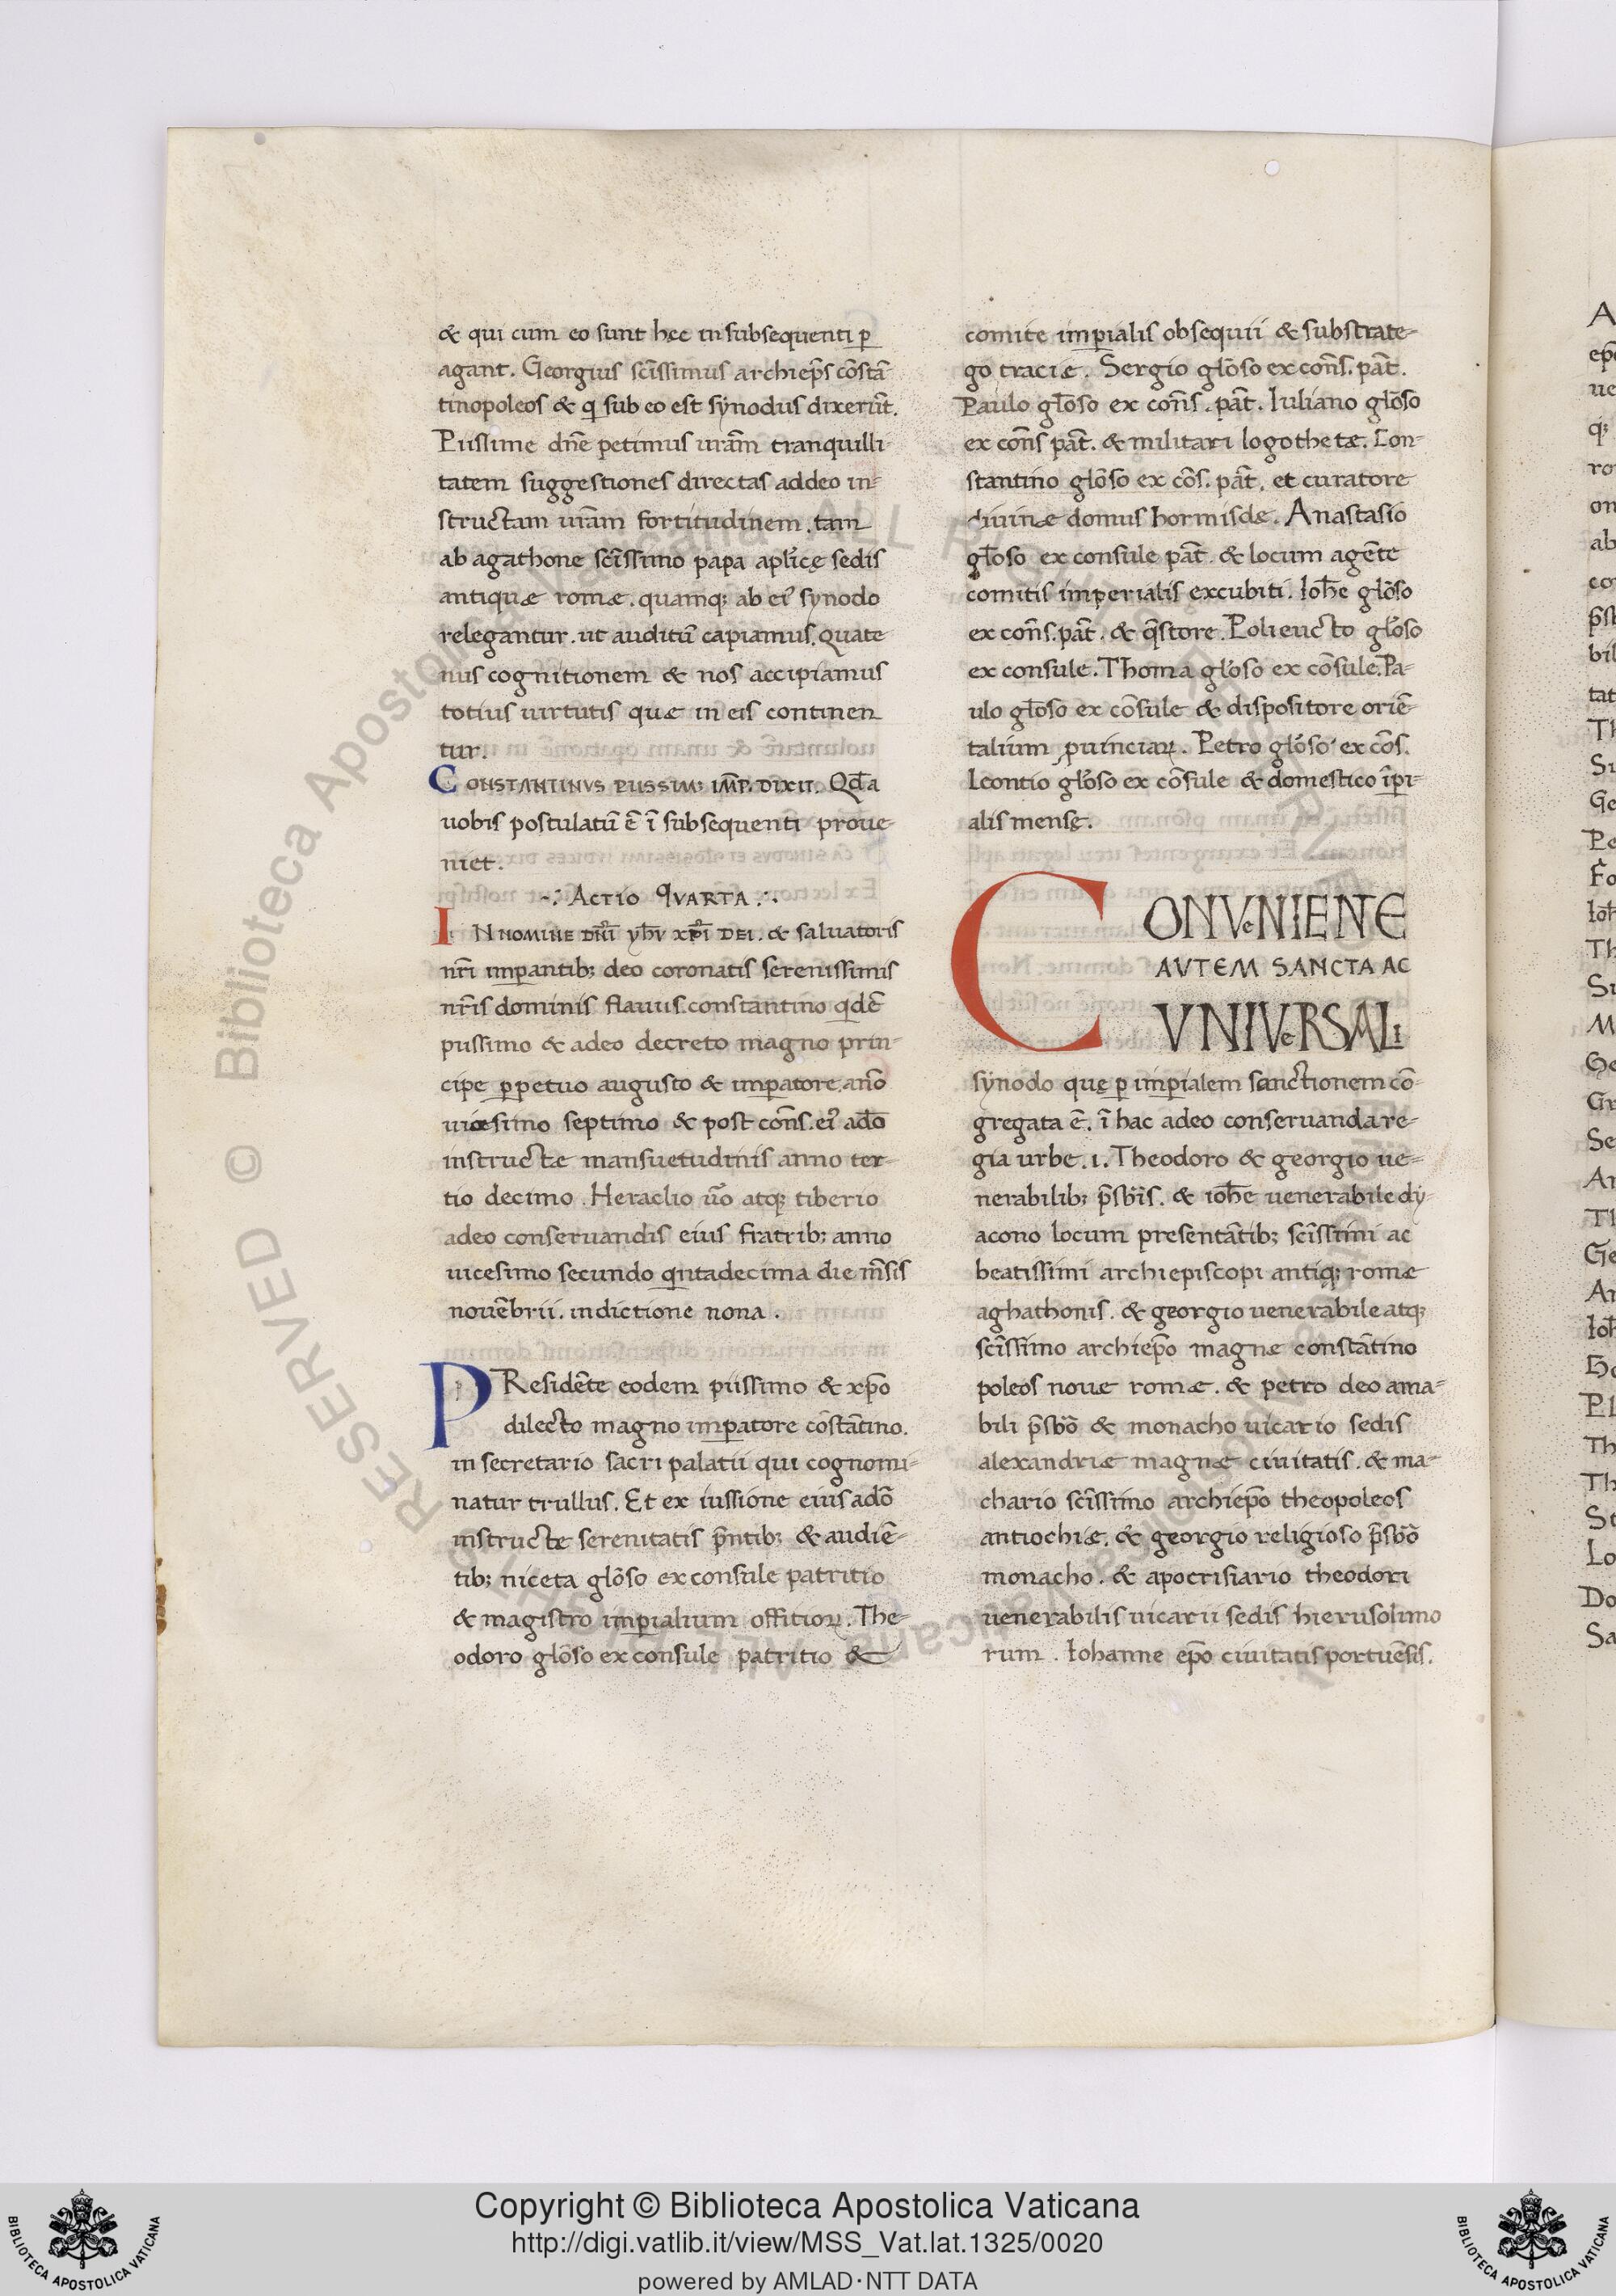 & qui cum eo sunt hęc in subsequenti p̲
agant. Georgius sc̄issimus archiep̄s cōstā
tinopoleos & q̲ sub eo est synodus dixerūt.
Piissime dn̄e petimus ur̄am tranquilli
tatem suggestiones directas addeo in=
structam ur̄am fortitudinem. tam
ab agathone sc̄issimo papa apl̄icę sedis
antiquæ romæ. quamq; ab eiꝰ synodo
relegantur. ut auditū capiamus. Quate
nus cognitionem & nos accipiamus
totius uirtutis quæ in eis continen
tur.
CONSTANTINVS PIISSIM; IM̄P. DIXIT. Qd̄ a
uobis postulatū ē ī subsequenti proue-
niet.
.: ACTIO QVARTA .:.
IN NOMINE DN̄I YHV̄ XP̄I DEI. & saluatoris
nr̄i imp̲antib; deo coronatis serenissimis
nr̄is dominis flauius. constantino q̲dē
piissimo & adeo decreto magno prin-
cipe p̲petuo augusto & imp̲atore. an̄o
uicesimo septimo & post con̄s. eiꝰ ad̄o
instructæ mansuetudinis anno ter-
tio decimo. Heraclio ūo atq; tiberio
adeo conseruandis eius fratrib; anno
uicesimo secundo q̲ntadecima die m̄sis
nouēbrii. indictione nona.
PResidēte eodem piissimo & xp̄o
dilecto magno imp̲atore cōstātino.
in secretario sacri palatii qui cognomi=
natur trullus. Et ex iussione eius adō
instructe serenitatis p̄ntib; & audiē-
tib; niceta glōso ex consule patritio
& magistro imp̲ialium offitioꝝ. The=
odoro glōso ex consule patritio &
comite imp̲ialis obsequii & substrate=
go traciæ. Sergio glōso ex con̄s. pāt.
Paulo gl̄oso ex con̄s. pāt. Iuliano glōso
ex con̄s pāt. & militari logothetæ. Con-
stantino glōso ex cōs. pāt. et curatore
diuinæ domus hormisdę. Anastasio
gl̄oso ex consule pāt. & locum agēte
comitis imperialis excubiti. Ioh̄e glōso
ex con̄s. pāt. & q̄store. Polieucto glōso
ex consule. Thoma glōso ex cōsule. Pa-
ulo gl̄oso ex cōsule & dispositore oriē-
talium ꝓuinciaꝝ. Petro glōso ex cōs.
Leontio glōso ex cōsule & domestico īp̲i-
alis mensę.
CONVENIENTE
AVTEM SANCTA AC
VNIVERSALI
synodo quę p̲ imp̲ialem sanctionem cō-
gregata ē. ī hac adeo conseruanda re-
gia urbe. i. Theodoro & georgio ue=
nerabilib; p̄sbīs. & ioh̄e uenerabile dy-
acono locum presentātib; sc̄issimi ac
beatissimi archiepiscopi antiq; romæ
aghathonis. & georgio uenerabile atq;
sc̄issimo archiep̄o magnæ constātino
poleos noue romæ. & petro deo ama=
bili p̄sbō & monacho uicario sedis
alexandriæ magnæ ciuitatis. & ma=
chario sc̄issimo archiep̄o theopoleos
antiochiæ. & georgio religioso p̄sbō
monacho. & apocrisiario theodori
uenerabilis uicarii sedis hierusolimo
rum. Iohanne ep̄o ciuitatis portuēsis.
Copyright © Biblioteca Apostolica Vaticana
http://digi.vatlib.it/view/MSS_Vat.lat.1325/0020
powered by AMLAD·NTT DATA
BIBLIOTECA APOSTOLICA VATICANA
BIBLIOTECA APOSTOLICA VATICANA